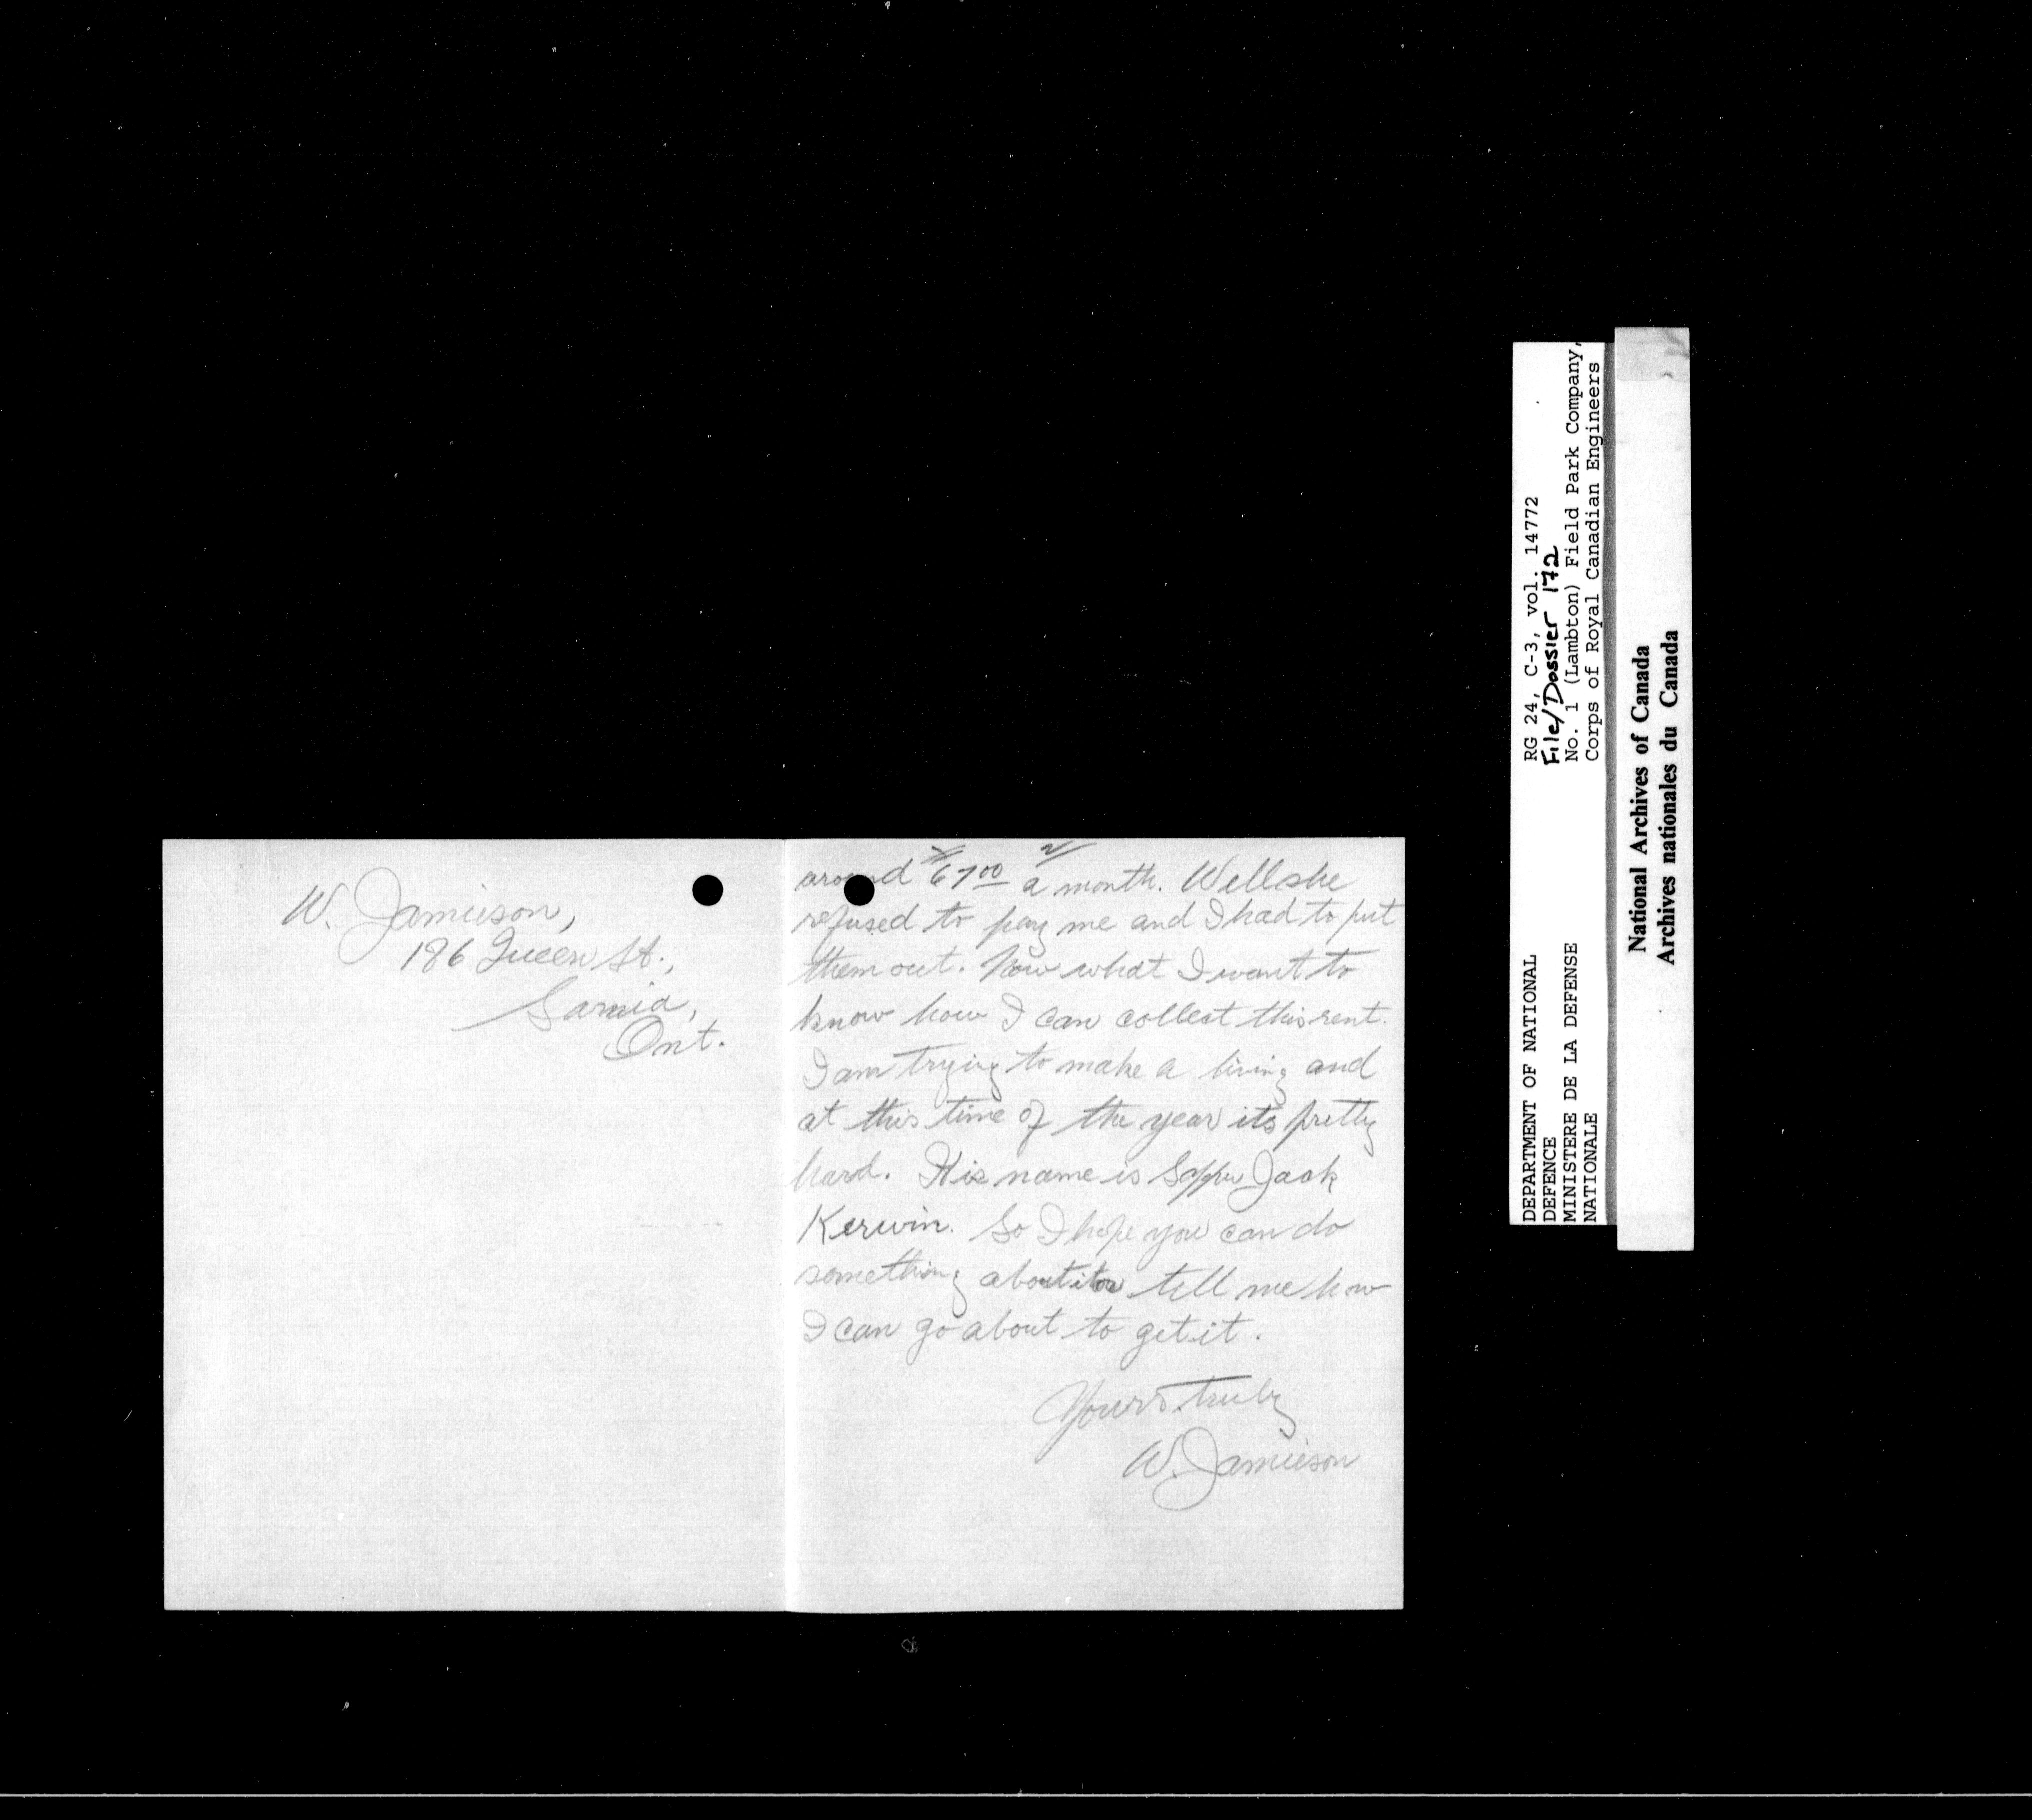 W. Jamieson,
186 Queen St.,
Sarnia,
Ont.
2/
around $67.00 a month. Well she
refused to pay me and I had to put
them out. Now what I want to
know how I can collect this rent.
I am trying to make a living and
at this time of the year its pretty
hard. His name is Sapper Jack
Kerwin. So I hope you can do
something about it or tell me how
I can go about to get it.
Yours truly
W. Jamieson
DEPARTMENT OF NATIONAL
DEFENCE
MINISTERE DE LA DEFENSE
NATIONALE
RG 24, C-3, vol. 14772
File/Dossier 172
No. 1 (Lambton) Field Park Company,
Corps of Royal Canadian Engineers
National Archives of Canada
Archives nationales du Canada